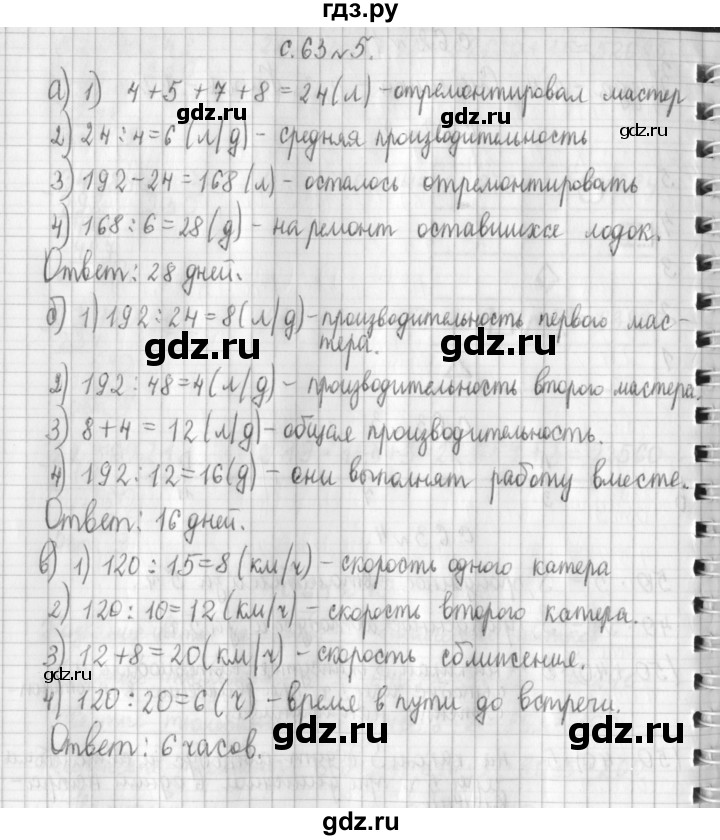 гдз.ру
с. 63 № 5.
а) 1) 4 + 5 + 7 + 8 = 24 (л) - отремонтировал мастер
gdz.ru
gdz.ru
2) 24 : 4 = 6 (л/д) - средняя производительность
3) 192 - 24 = 168 (л) - осталось отремонтировать
4) 168 : 6 = 28 (д) - на ремонт оставшихся лодок.
gdz.ru
gdz.ru
Ответ: 28 дней.
б) 1) 192 : 24 = 8 (л/д) - производительность первого мас-
тера.
gdz.ru
gdz.ru
2) 192 : 48 = 4 (л/д) - производительность второго мастера.
3) 8 + 4 = 12 (л/д) - общая производительность.
4) 192 : 12 = 16 (д) - они выполнят работу вместе.
gdz.ru
gdz.ru
Ответ: 16 дней.
в) 1) 120 : 15 = 8 (км/ч) - скорость одного катера
2) 120 : 10 = 12 (км/ч) - скорость второго катера.
3) 12 + 8 = 20 (км/ч) - скорость сближения.
gdz.ru
4) 120 : 20 = 6 (ч) - время в пути до встречи.
gdz.ru
Ответ: 6 часов.
gdz.ru
gdz.ru
gdz.ru